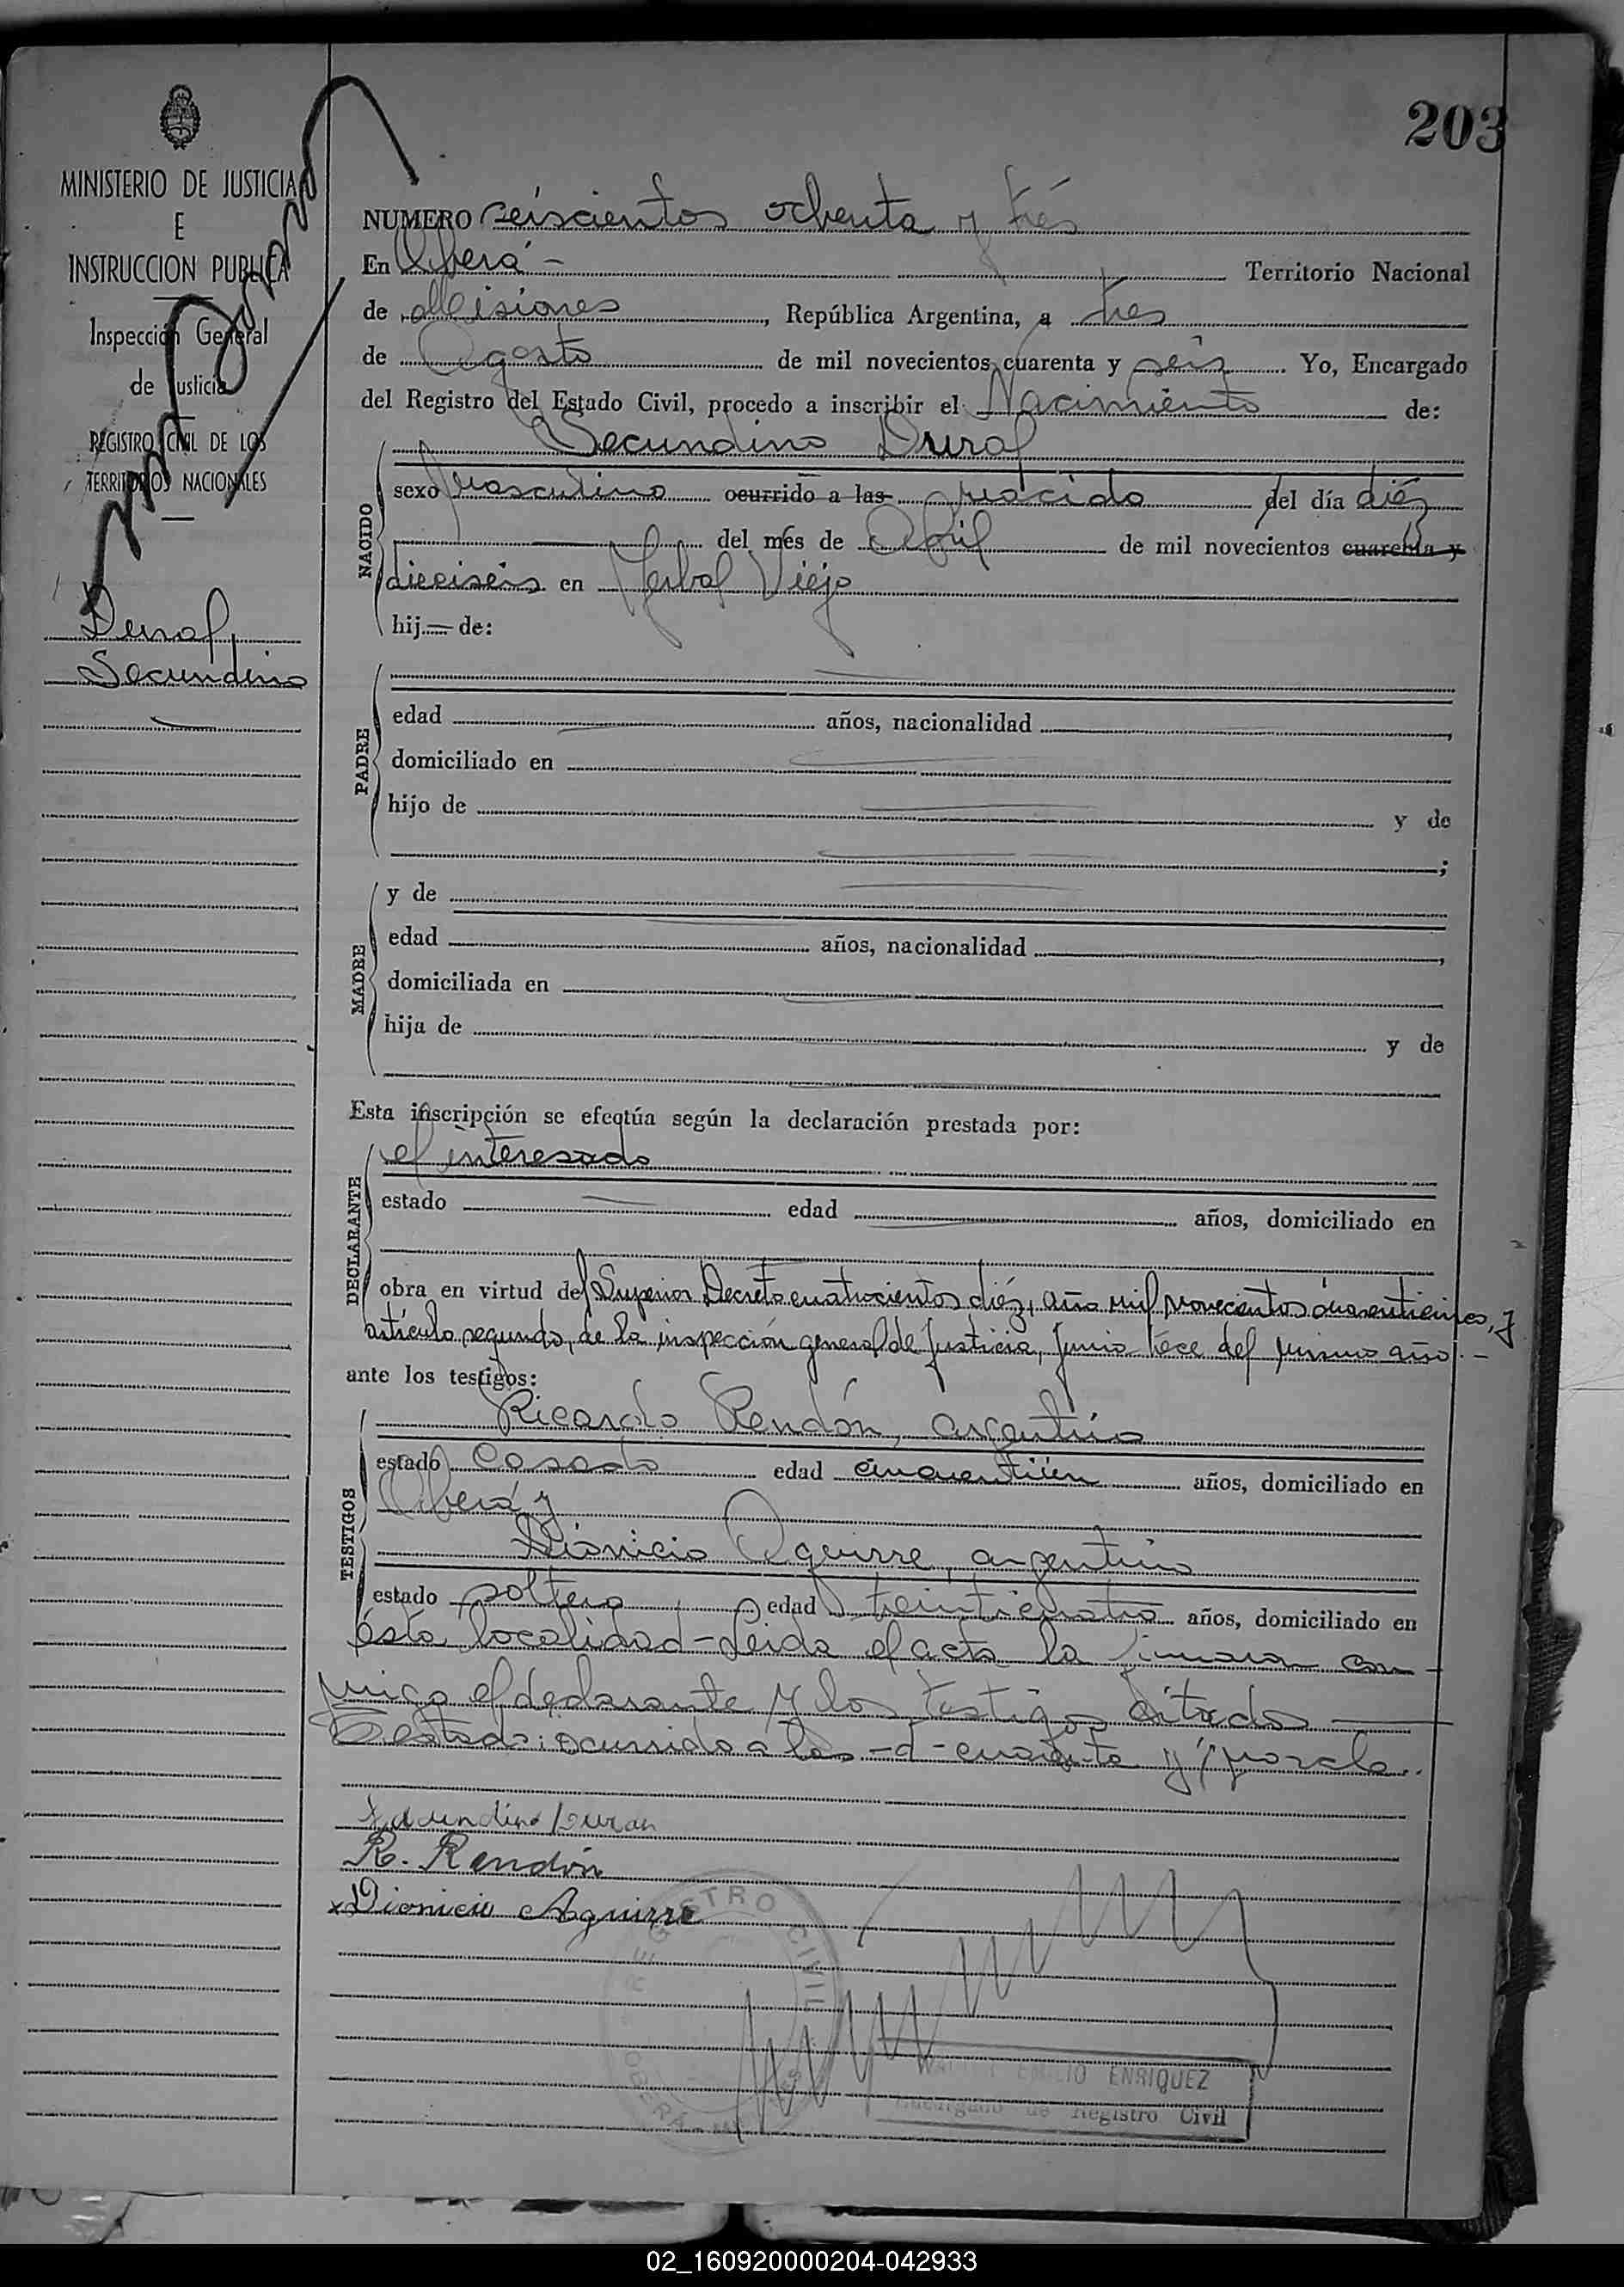 203
MINISTERIO DE JUSTICIA
E
INSTRUCCION PUBLICA
Inspección General
de Justicia
REGISTRO CIVIL DE LOS
TERRITORIOS NACIONALES
Secundino
NUMERO seiscientos ochenta y trés
En Oberá - Territorio Nacional
de Misiones, República Argentina, a tres
de Agosto de mil novecientos cuarenta y seis. Yo, Encargado
del Registro del Estado Civil, procedo a inscribir el Nacimiento de:
Secundino
NACIDO
sexo Masculino ocurrido a las nacido del día diéz
del més de Abril de mil novecientos cuarenta y
dieciseis en Yerbal Viejo
hij de:
PADRE
edad años, nacionalidad
domiciliado en
hijo de y de
;
MADRE
y de
edad años, nacionalidad
domiciliada en
hija de y de
Esta inscripción se efectúa según la declaración prestada por:
DECLARANTE
el interesado
estado edad años, domiciliado en
obra en virtud del Superior Decreto cuatrocientos diéz, año mil novecientos y
artículo segundo, de la inspección general de Justicia, Junio del mismo año.-
ante los testigos:
TESTIGOS
Ricardo Rendón, argentino
estado Casado edad años, domiciliado en
Oberá y
Dionicio Aguirre, argentino
estado soltero edad treinticuatro años, domiciliado en
ésta localidad - Leida el acta la firmaron con-
migo el declarante y los testigos citados
Testado: ocurrido a las -d- cuarenta y/ no vale.
Secundino Duran
R. Rendón
x Dionicio Aguirre
REGISTRO CIVIL
OBERA
EMILIO ENRIQUEZ
Encargado de Registro Civil
02_160920000204-042933